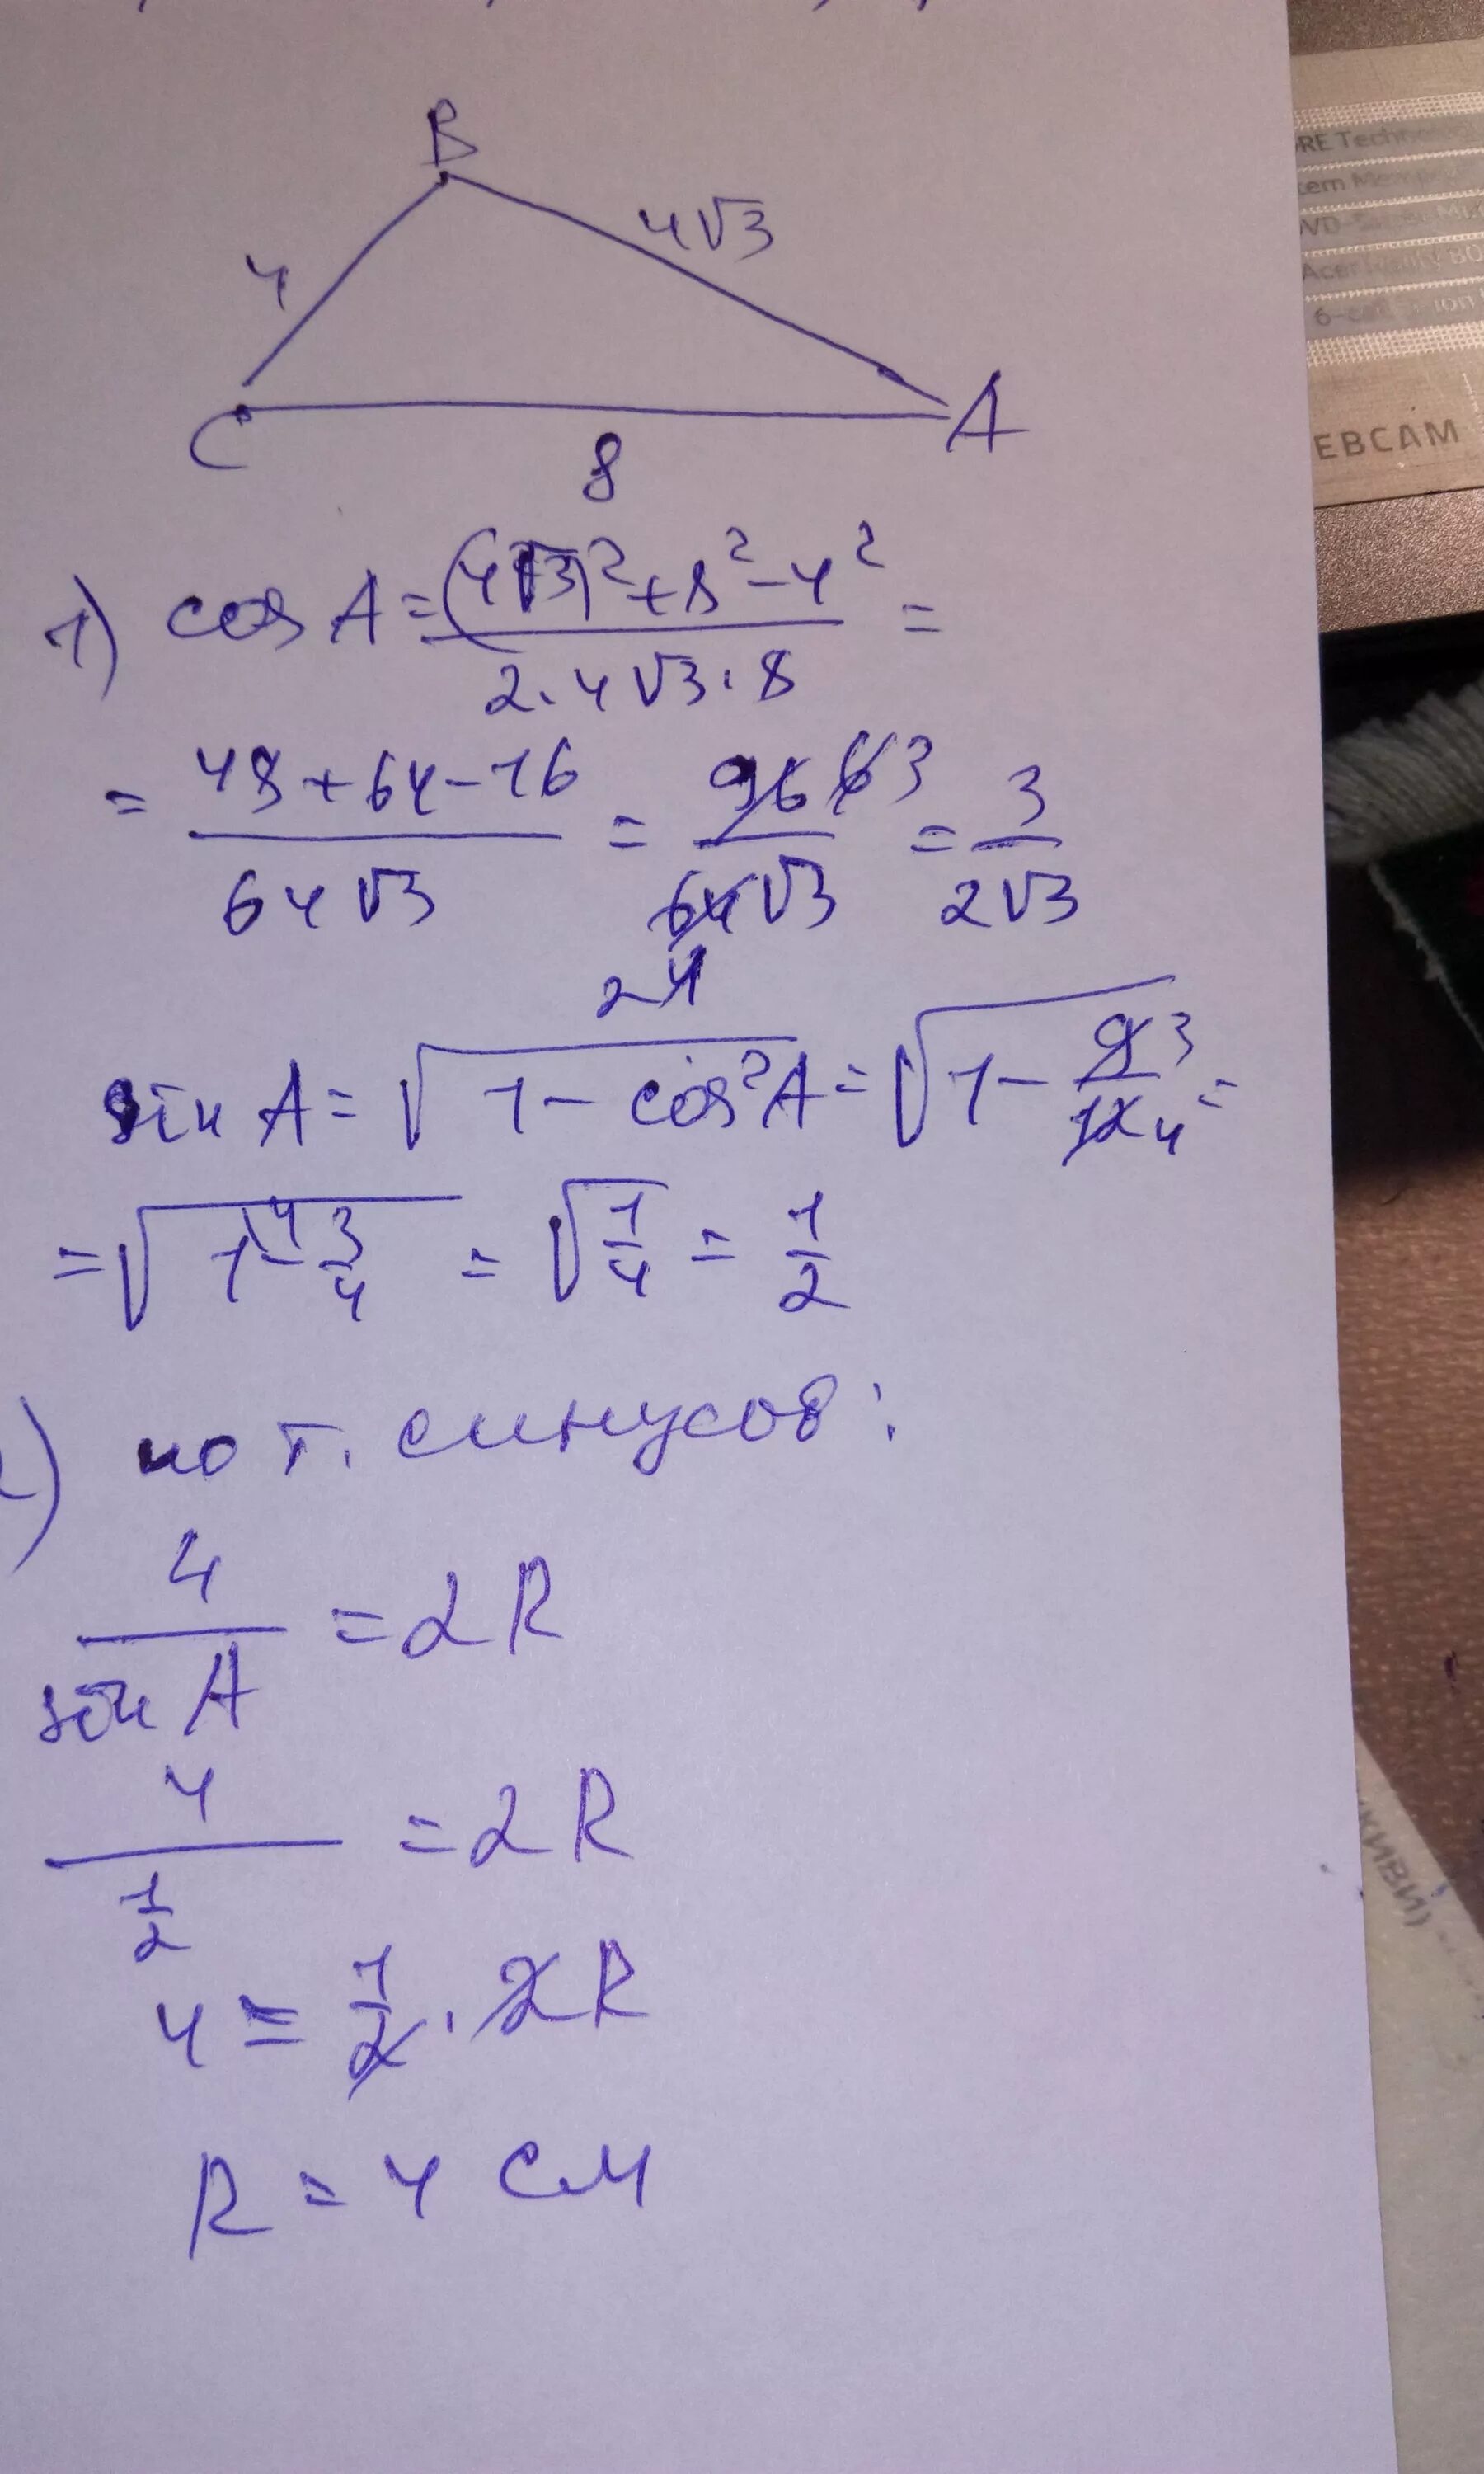 B
4
4√3
C
A
8
1) cos A = (4√3)² + 8² − 4² / 2·4√3·8 =
= 48 + 64 − 16 / 64√3 = 96 6 3 / 64√3 4 2 = 3 / 2√3
sin A = √(1 − cos² A) = √(1 − 9 3 / 12 4) =
= √(1 4 − 3/4) = √(1/4) = 1/2
) по т. синусов:
4 / sin A = 2R
4 / 1/2 = 2R
4 = 1/2 · 2R
R = 4 см
RE Techno
tem Mem
Acer
6-ce
EBCAM
КИВИ)